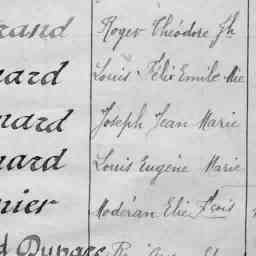 rand Roger Théodore Jh
nard Louis Félix Emile Mie
nard Joseph Jean Marie
nard Louis Eugène Marie
nier Modéran Elie Fçois
d Duparc